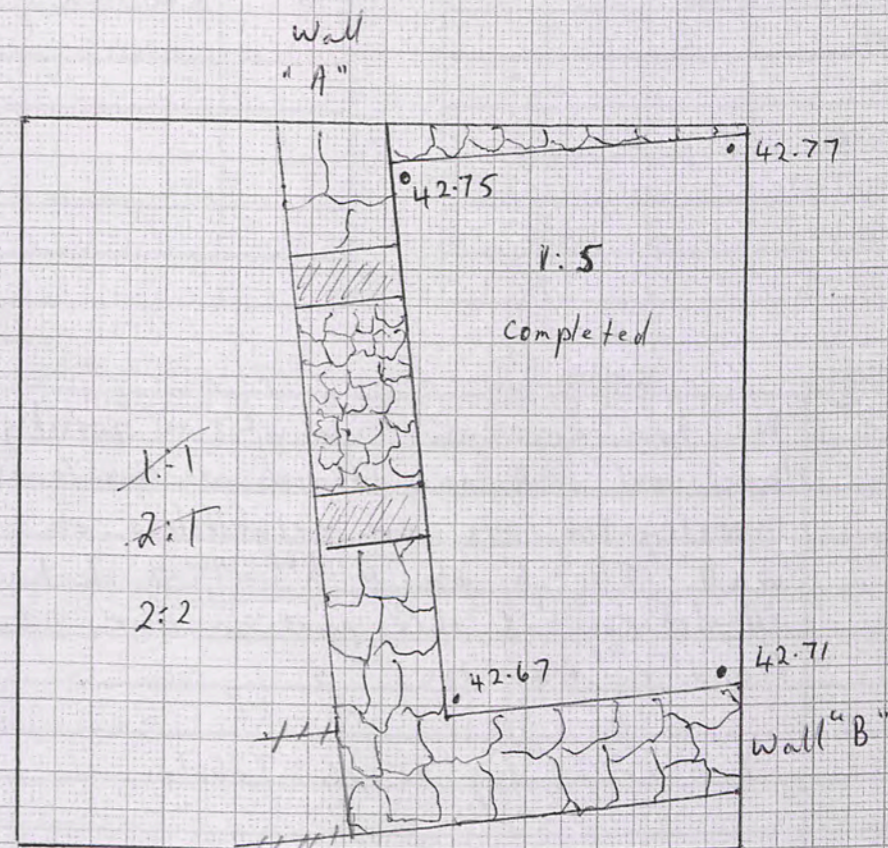 Wall
"A"
42.77
42.75
1:5
completed
1:1
2:1
2:2
42.67
42.71
Wall "B"